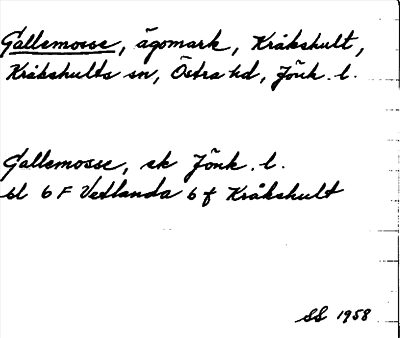 Gallemosse, ägomark, Kråkshult,
Kråkshults sn, Östra hd, Jönk. l.
Gallemosse, ek Jönk. l.
bl 6 F Vetlanda 6 f Kråkshult
SS 1958